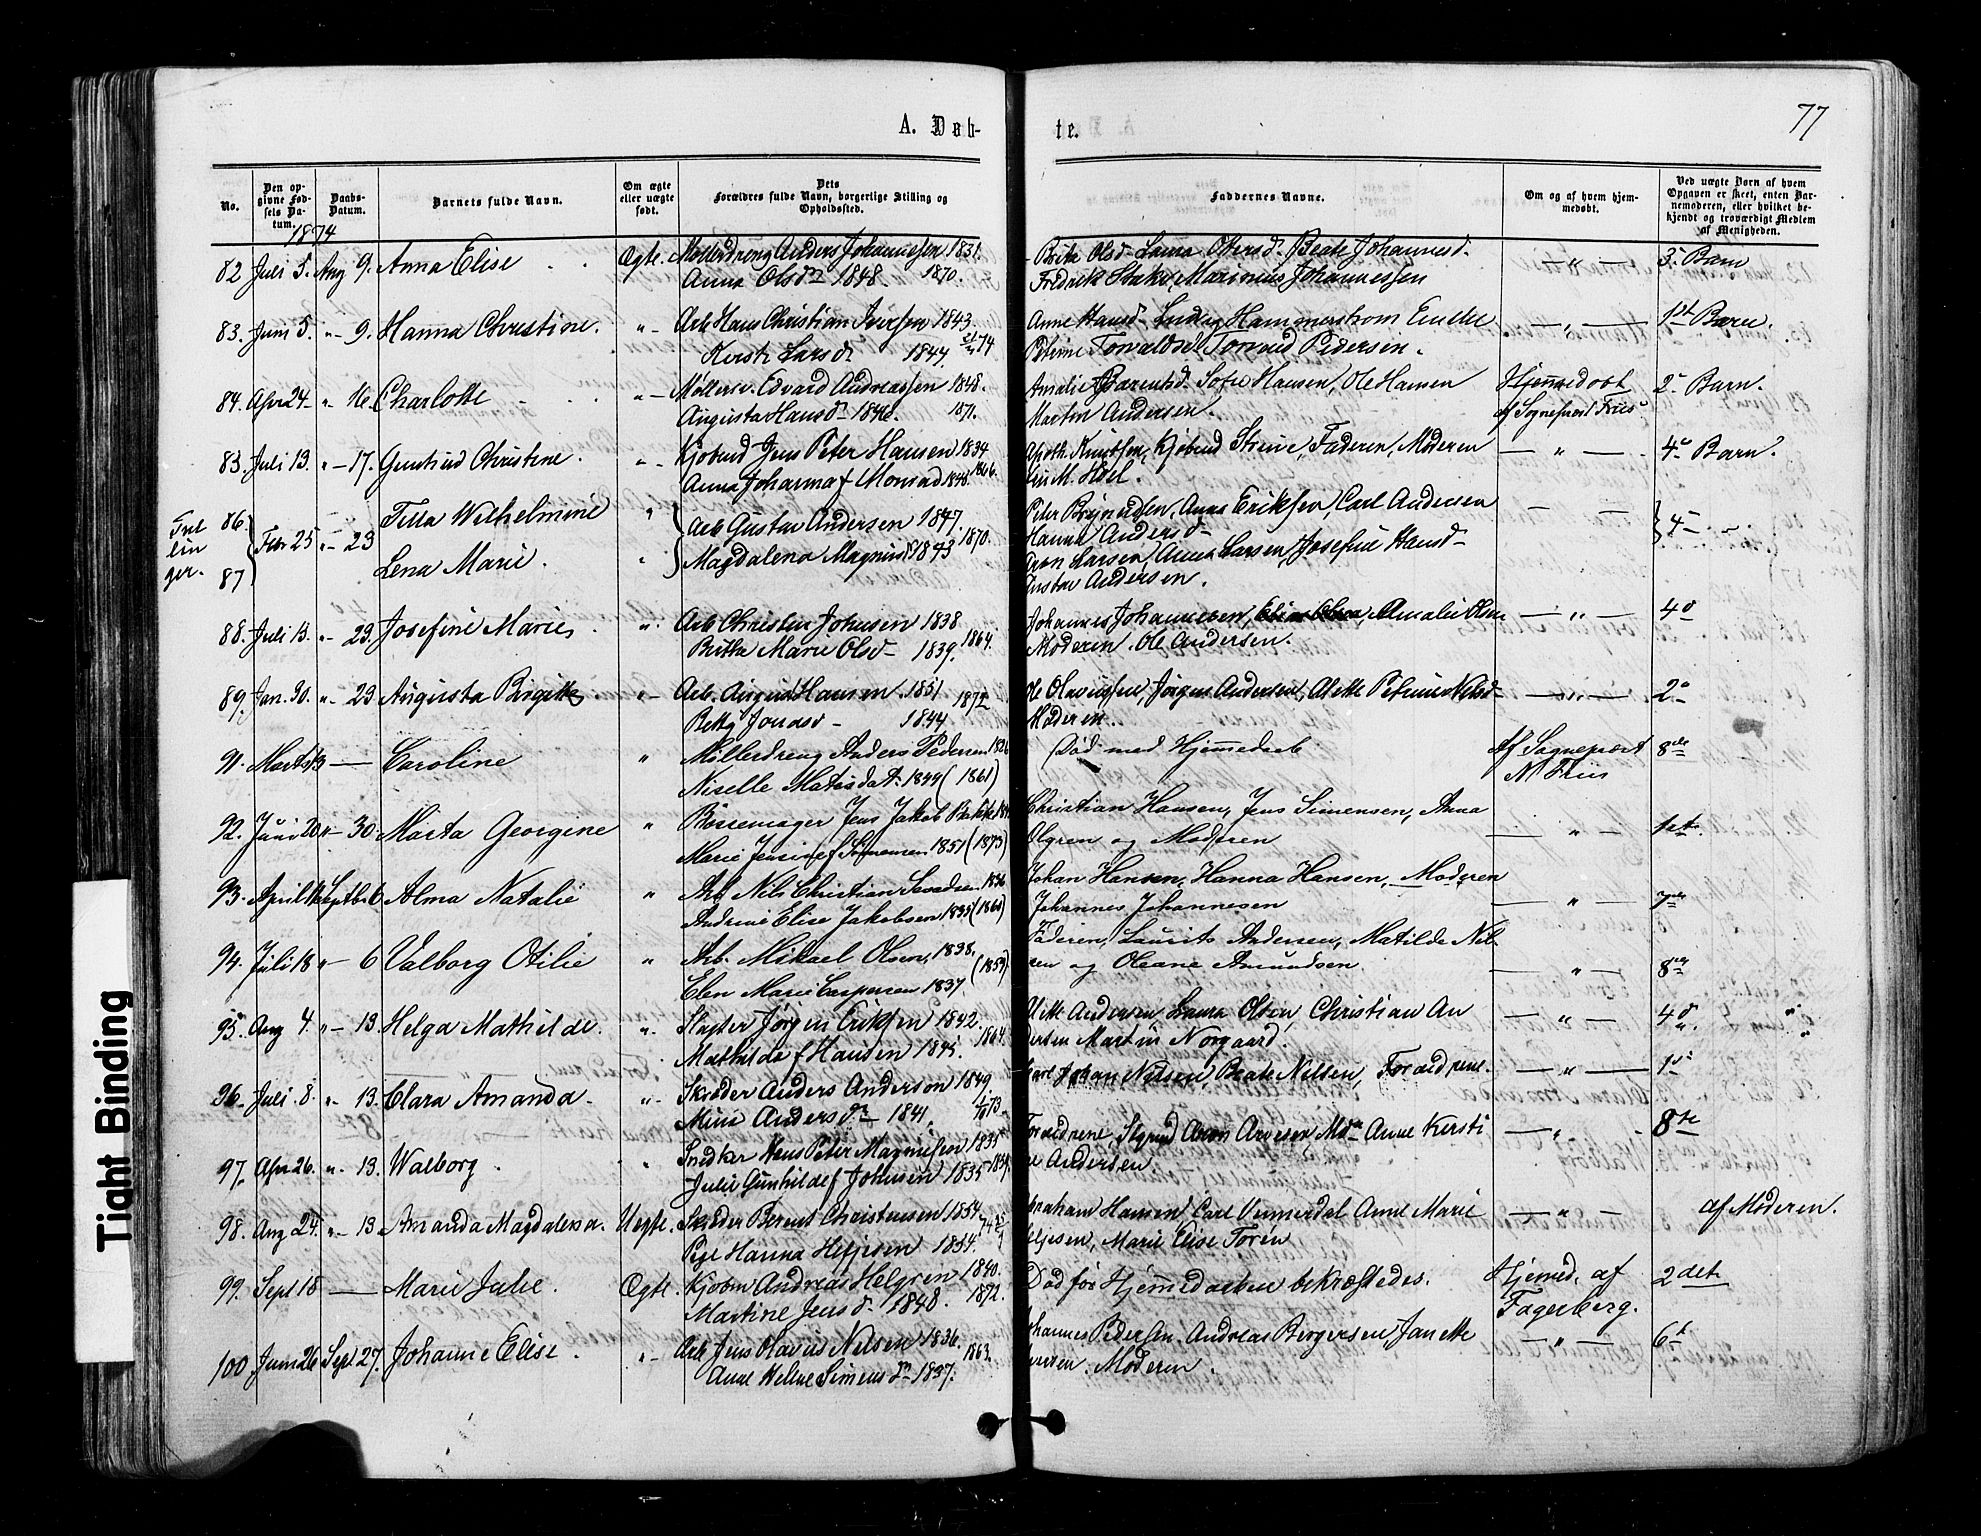 77
A. Døb-
te.
No.
Den op-
givne Fød-
sels Da-
tum.
Daabs-
Datum.
Barnets fulde Navn.
Om ægte
eller uægte
født.
Dets
Forældres fulde Navn, borgerlige Stilling og
Opholdssted.
Faddernes Navne.
Om og af hvem hjem-
medøbt.
Ved uægte Børn af hvem
Opgaven er skeet, enten Bar-
nemoderen, eller hvilket be-
kjendt og troværdigt Medlem
af Menigheden.
1874
82 Juli 5. Aug 9. Anna Elise Ægte. Møllerdreng Anders Johannesen 1831.
Anna Olsdr 1848. 1870.
Brita Olsd Laura Beate Johannesd.
Fredrik Marinius Johannessen
3. Barn
83. Juni 5. " 9. Hanna Christine. " Arb Hans Christian Iversen 1843
Kersti Larsdr 1844. 74
Anne Hansd Ludvig Hammerstrøm
Petrine Torvald Pedersen.
1st Barn.
84. Apr 24 " 16. Charlotte " Møllersv. Edvard Andreassen 1848.
Augusta Hansdr 1846. 1871.
Amalie Barentsd. Sofie Hansen, Ole Hansen
Martin Andersen.
Hjemmedøbt
af Sogneprest Friis
2 Barn.
83. Juli 13. " 17. Gunhild Christine. " Kjøbmd Jens Peter Hansen 1834
Anna Johanna f Monrad 1848. 1866.
Apoth. Knutsen, Kjøbmd Faderen, Moderen
M. Hoel.
4 Barn.
Tvil
lin
ger.
86
87
Febr 25 " 23
Tilla Wilhelmine
Lena Marie.
Arb Gustav Andersen 1847.
Magdalena Magnusd 1843 1870.
Peter Brynildsen, Anna Eriksen, Carl Andersen
Hanna Andersd
Larsen, Anna Larsen, Josefine Hansd
Gustav Andersen.
4
88. Juli 13. " 23. Josefine Marie " Arb Christen Johnsen 1838
Britha Marie Olsd 1839. 1864.
Johannes Johannesen, Amalie Olsen
Moderen. Ole Andersen.
4d
89. Jan. 30. " 23 Augusta Birgitte " Arb. August Hansen 1851 1872
Betty Jonasd 1844
Ole Olaviussen, Jørgen Andersen, Alette Petrine Nilsd
Moderen.
2
91. Marts 13 Caroline " Møllerdreng Anders Pedersen 1826
Niselle Matisdatr 1849 (1861)
Død med Hjemmedaab
af Sogneprest
N Friis
8de
92. Juni 20 " 30. Marta Georgine " Børsemager Jens Jakob
Marie Jensine f Simensen 1851 (1873)
Christian Hansen, Jens Simensen, Anna
Olgren og Moderen
1ste
93. April Septbr 6 Alma Natalie " Arb Nils Christian 1836
Andrine Elise Jakobsen 1835
Johan Hansen, Hanna Hansen, Moderen
Johannes Johannesen
7de
94. Juli 18 " 6 Valborg Otilie " Arb. Mikael Olsen, 1838.
Elen Marie Caspersen 1837. (1859)
Faderen, Laurits Andersen, Matilde Nil-
sen og Oleane Amundsen
8de
95. Aug 4. " 13. Helga Mathilde. " Slagter Jørgen Eriksen 1842.
Mathilde f Hansen 1845. 1864.
Andersen Laura Olsen, Christian An
dersen Martin Norgaard.
4d
96. Juli. 8. " 13. Clara Amanda. " Skræder Anders Anderson 1849.
Mina Andersdr 1841. 73
Karl Johan Nilsen, Beate Nilsen, Forældrene.
1
97. Apr 26. " 13. Walborg. " Snedker Hans Peter Magnusen 1835
Julie Gunhilde f Johnsen 1835
Forældrene, Aron Arvesen Anne Kersti
ne Andersen
8de
98. Aug 24. " 13 Amanda Magdalena. Uægte. Skræder Berent Christensen 1854. 74
Pige Hanna Heljesen 1854.
Abraham Hansen Carl Anne Marie
Heljesen, Marie Elise Toren
af Moderen.
99. Sept 18 Marie Julie. Ægte. Kjøbm Andreas Helgren 1840.
Martine Jensdr 1848. 1872.
Død før Hjemmedaaben bekræftedes.
Hjemmed. af
Fagerberg.
2det
100 Juni 26 Sept 27. Johanne Elise. " Arb Jens Olavus Nilsen 1836. 1863.
Anne Helene Simensdr 1837.
Johannes Pedersen, Andreas Bergersen, Janette
Moderen.
6t
Tight Binding